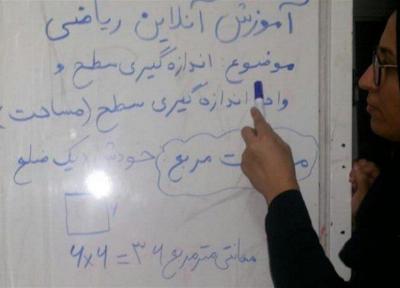 آموزش آنلاین ریاضی
موضوع: اندازه گیری سطح و
واحد اندازه گیری سطح (مساحت)
مربع: خودش × یک ضلع
۶×۶ = ۳۶ سانتی متر مربع